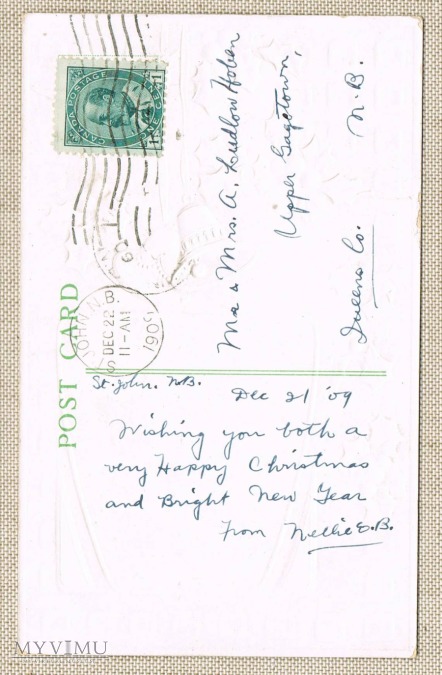 CANADA POSTAGE
ONE CENT
ST. JOHN N.B.
DEC 22
11-AM
1909
POST CARD
Mr & Mrs. A. Ludlow Hoben
Upper Gagetown,
Queens Co.
N.B.
St. John. N.B.
Dec 21 '09
Wishing you both a
very Happy Christmas
and Bright New Year
From Nellie E.B.
MYVIMU